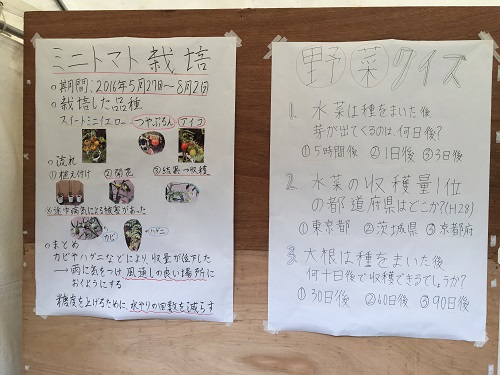 ミニトマト栽培
○期間：2016年5月27日〜8月2日
○栽培した品種
スイートミニイエロー つやぷるん アイコ
○流れ
①植え付け ②開花 ③結実→収穫
※途中病気による被害があった
カビ ハダニ
○まとめ
カビやハダニなどにより、収量が低下した
→雨に気をつけ、風通しの良い場所に
おくようにする
糖度を上げるために、水やりの回数を減らす
野菜クイズ
1. 水菜は種をまいた後
芽が出てくるのは、何日後？
①5時間後 ②1日後 ③3日後
2. 水菜の収穫量1位
の都道府県はどこか？(H28)
①東京都 ②茨城県 ③京都府
3. 大根は種をまいた後
何十日後で収穫できるでしょうか？
①30日後 ②60日後 ③90日後